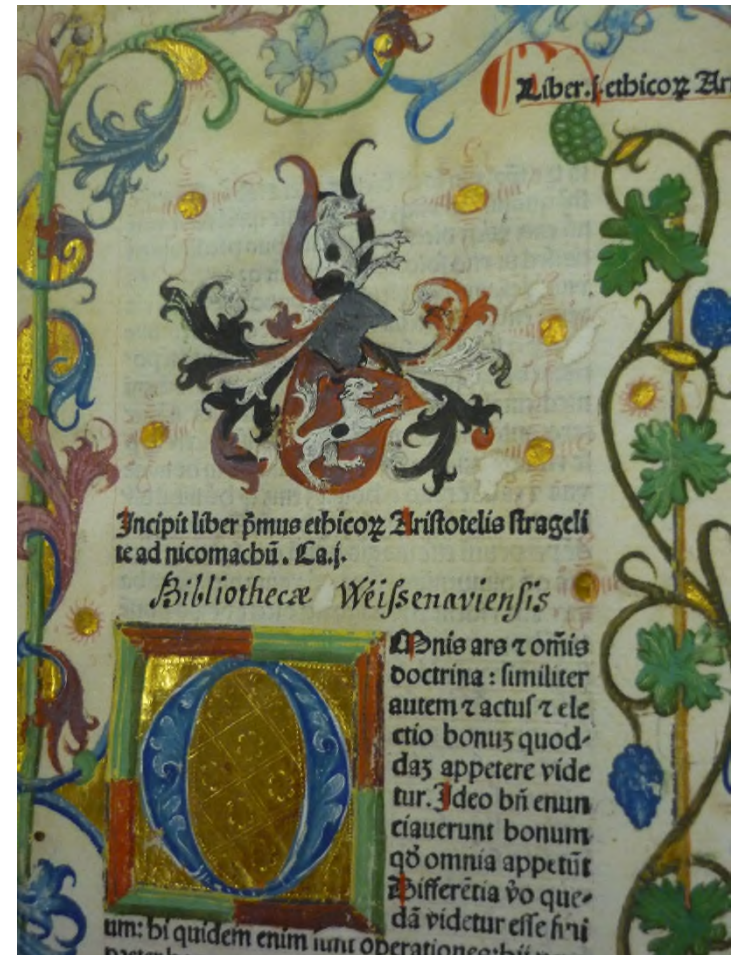 Liber .j. ethicoꝝ Ar
Incipit liber p̄mus ethicoꝝ Aristotelis strageli
te ad nicomachū. Ca.j.
Bibliothecæ Weissenaviensis
OMnis ars ⁊ om̄is
doctrina : similiter
autem ⁊ actus ⁊ ele
ctio bonuȝ quod-
daȝ appetere vide
tur. Ideo bn̄ enun
ciauerunt bonum
qđ omnia appetūt
Differētia v̄o que-
dā videtur esse fini
um: hi quidem enim sunt operationes: hij